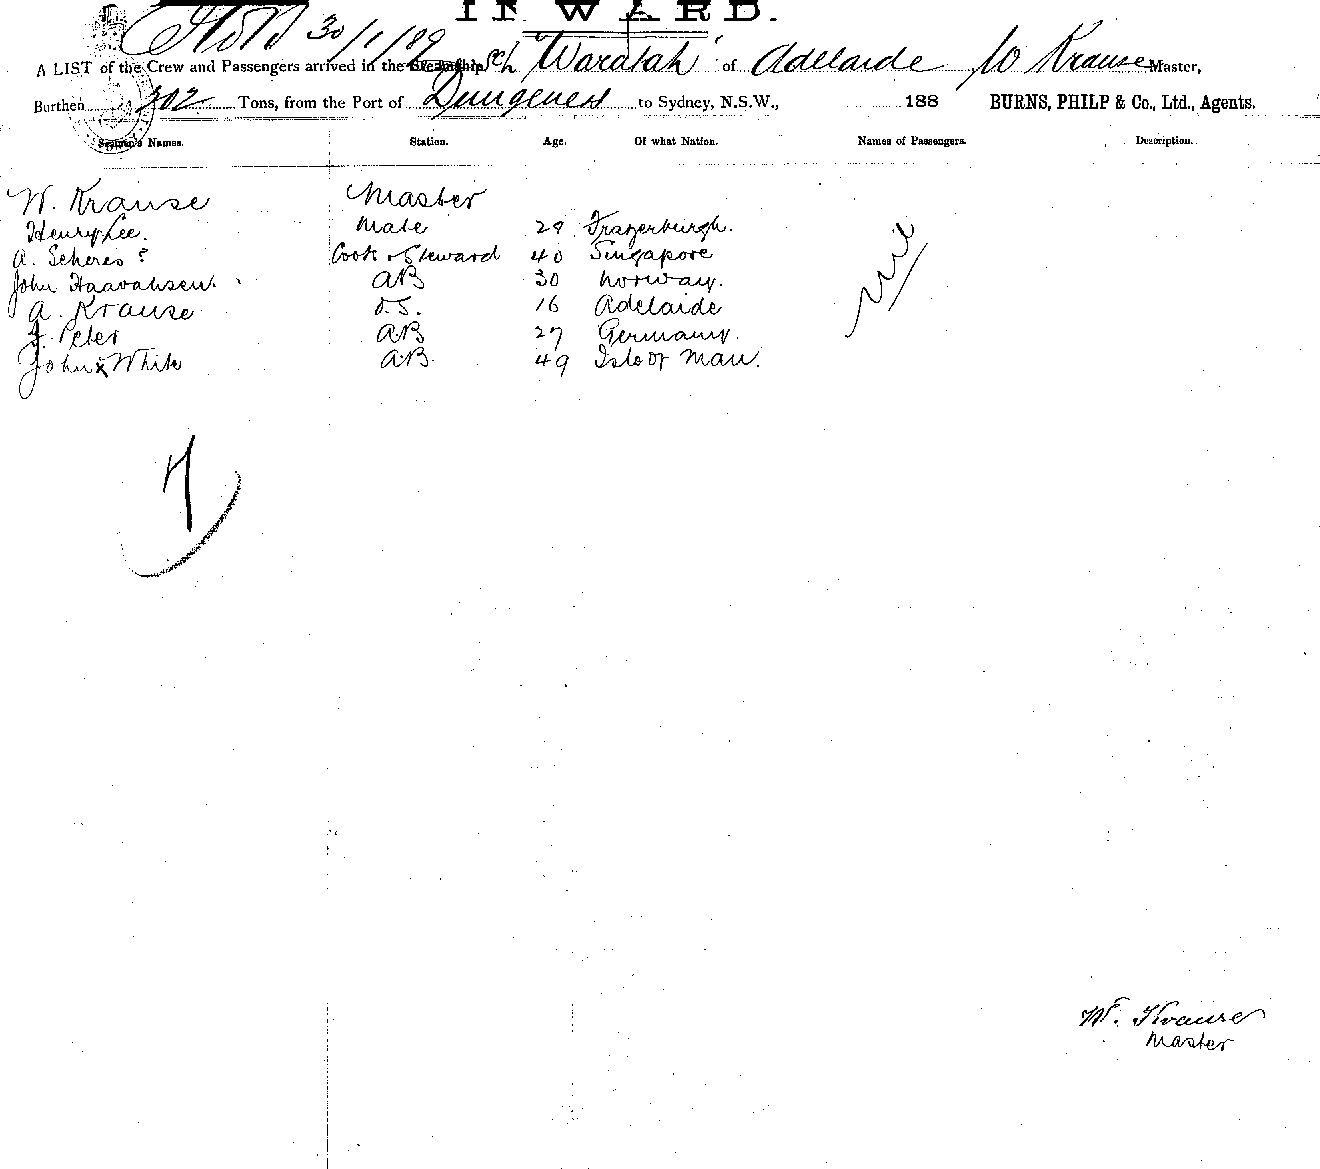 INWARD.
30/1/89
A LIST of the Crew and Passengers arrived in the Steamship Sch "Waratah" of Adelaide W Krause Master,
Burthen 202 Tons, from the Port of Dungeness to Sydney, N.S.W., 188 BURNS, PHILP & Co., Ltd., Agents.
Seamen's Names. Station. Age. Of what Nation. Names of Passengers. Description.
W. Krause Master
Henry Lee. Mate 29 Frazerburgh.
A. Scheres ? Cook & Steward 40 Singapore
John Haavahsen. AB 30 Norway.
A. Krause O.S. 16 Adelaide
J. Peter AB 27 Germany.
John White AB. 49 Isle of Man.
nil
7
W. Krause
Master